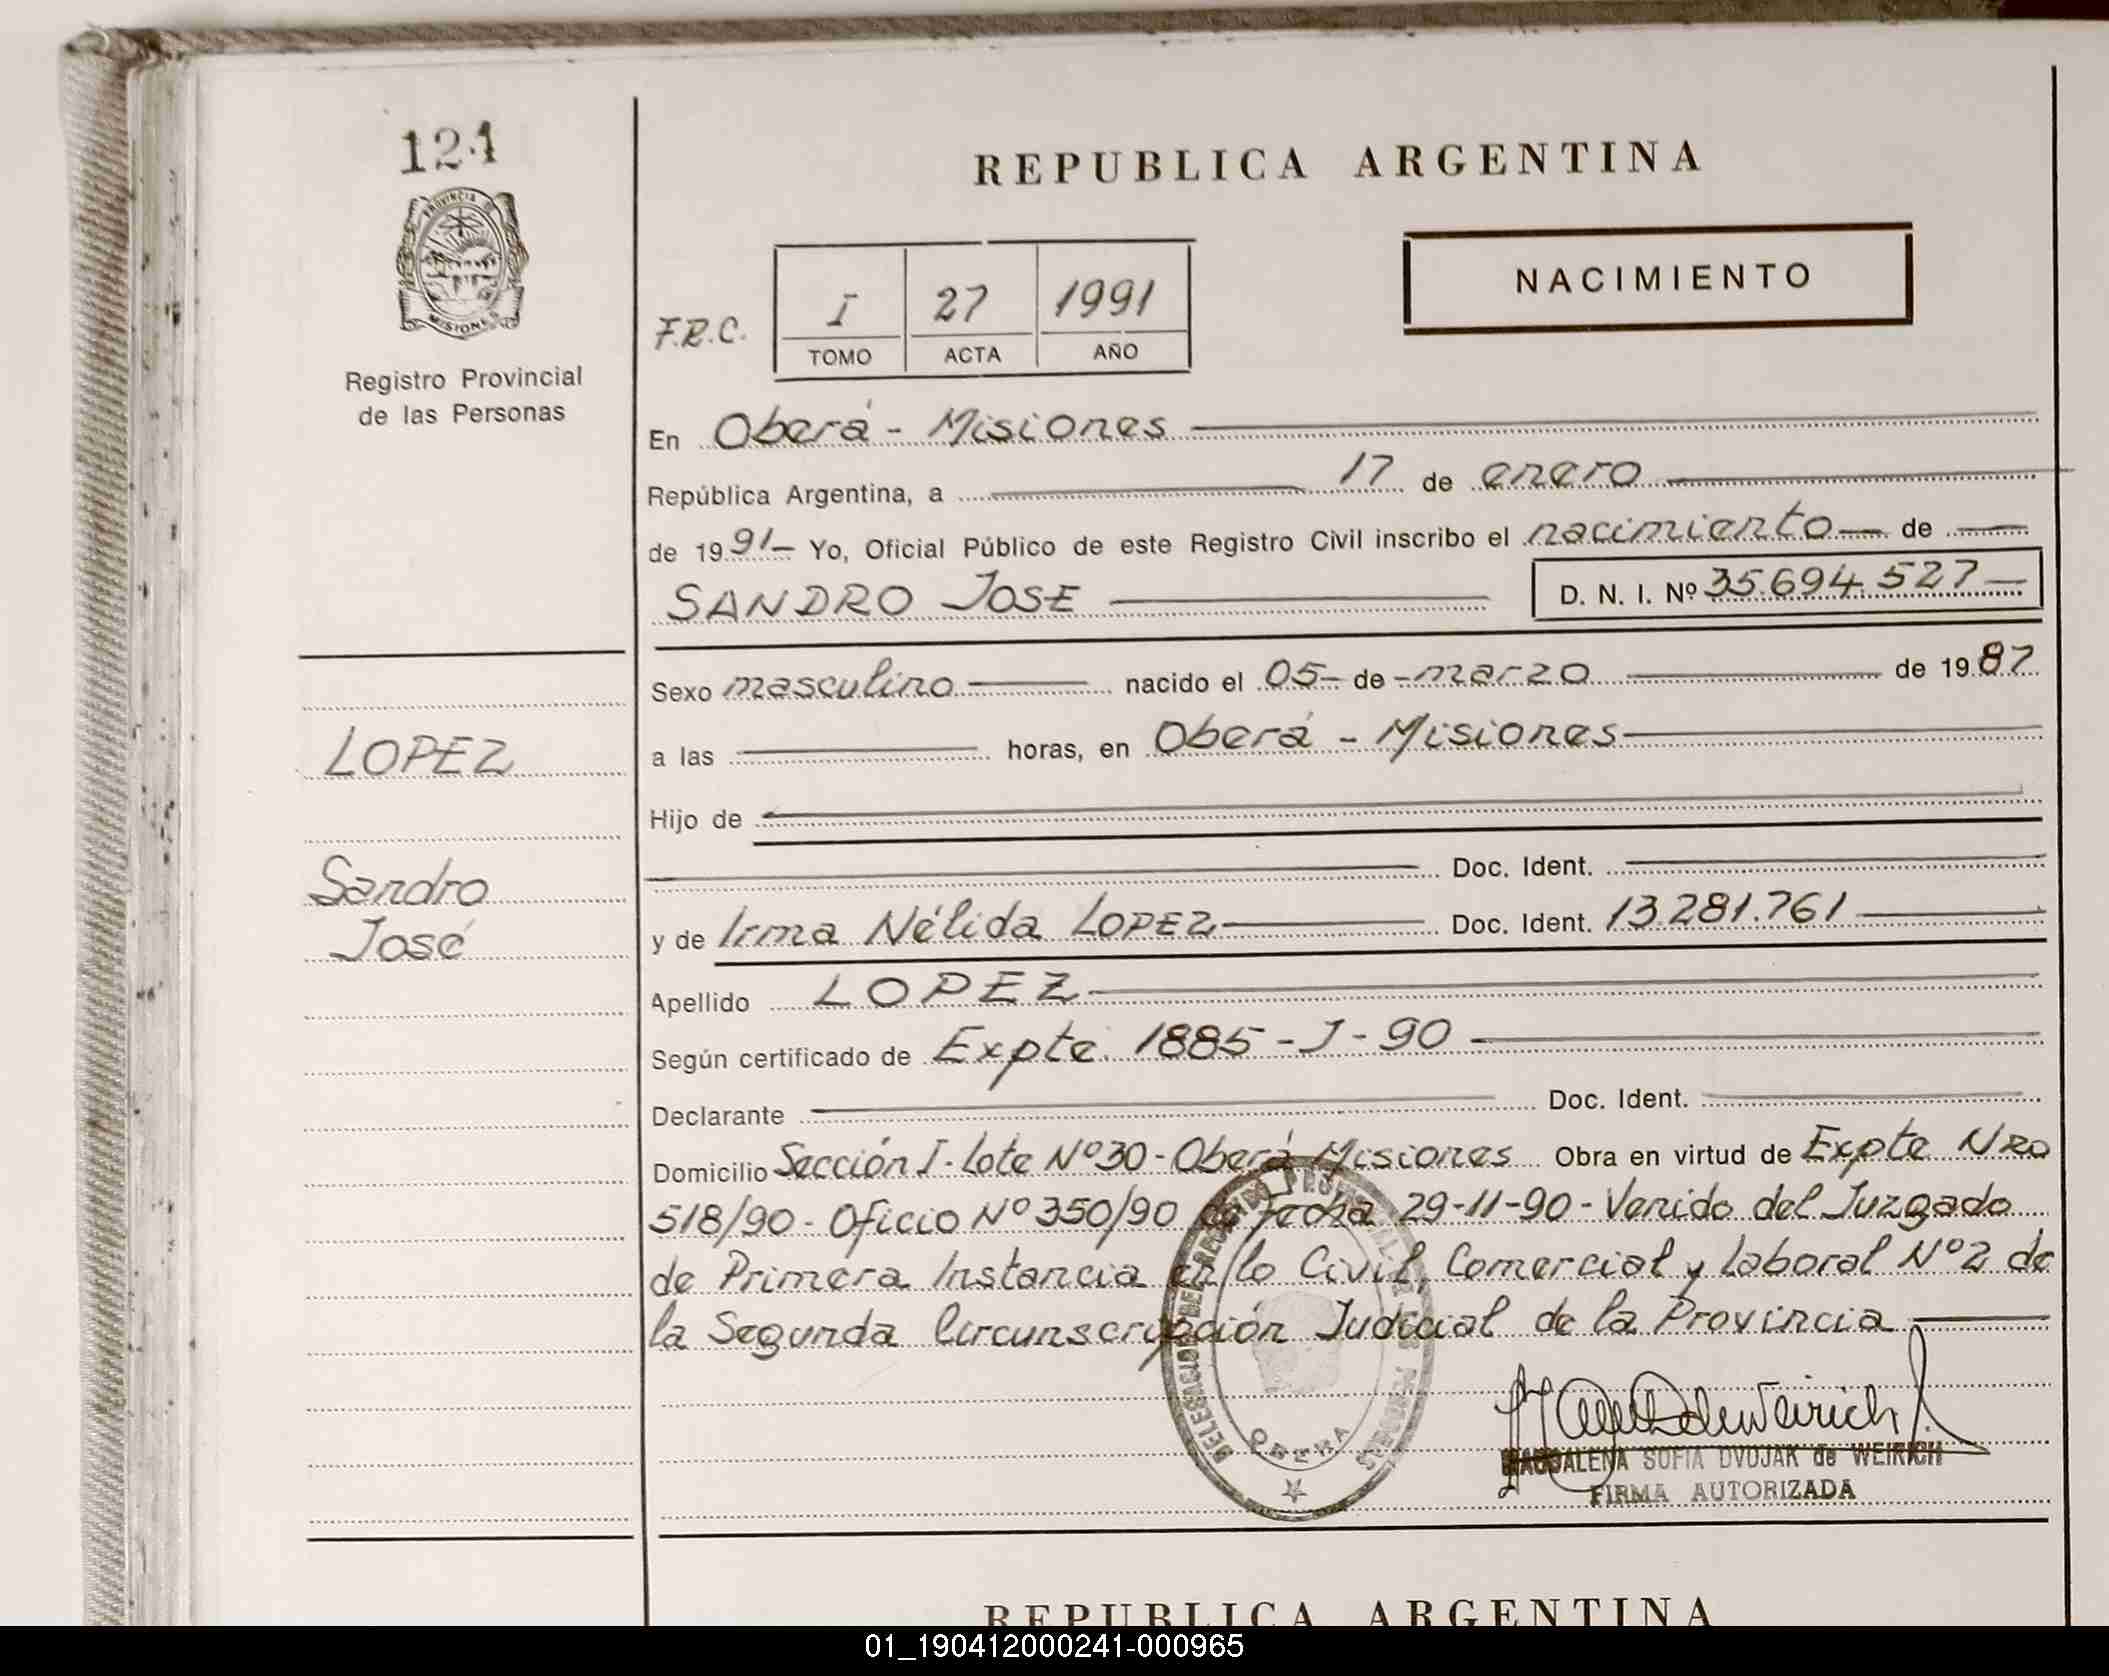 121
PROVINCIA DE
MISIONES
Registro Provincial
de las Personas
REPUBLICA ARGENTINA
NACIMIENTO
F.R.C.
I 27 1991
TOMO ACTA AÑO
En Oberá - Misiones
República Argentina, a 17 de enero
de 1991- Yo, Oficial Público de este Registro Civil inscribo el nacimiento de
SANDRO JOSE D. N. I. Nº 35.694.527
Sexo masculino nacido el 05 de marzo de 1987
a las horas, en Oberá - Misiones
LOPEZ
Hijo de
Doc. Ident.
Sandro
José
y de Irma Nélida LOPEZ Doc. Ident. 13.281.761
Apellido LOPEZ
Según certificado de Expte. 1885-J-90
Declarante Doc. Ident.
Domicilio Sección I - Lote Nº 30 - Oberá Misiones Obra en virtud de Expte Nro
518/90 - Oficio Nº 350/90 de fecha 29-11-90 - Venido del Juzgado
de Primera Instancia en lo Civil, Comercial y Laboral Nº 2 de
la Segunda Circunscripción Judicial de la Provincia
DELEGACION DEL REGISTRO PROVINCIAL DE LAS PERSONAS
OBERA
MAGDALENA SOFIA DVOJAK de WEIRICH
FIRMA AUTORIZADA
REPUBLICA ARGENTINA
01_190412000241-000965